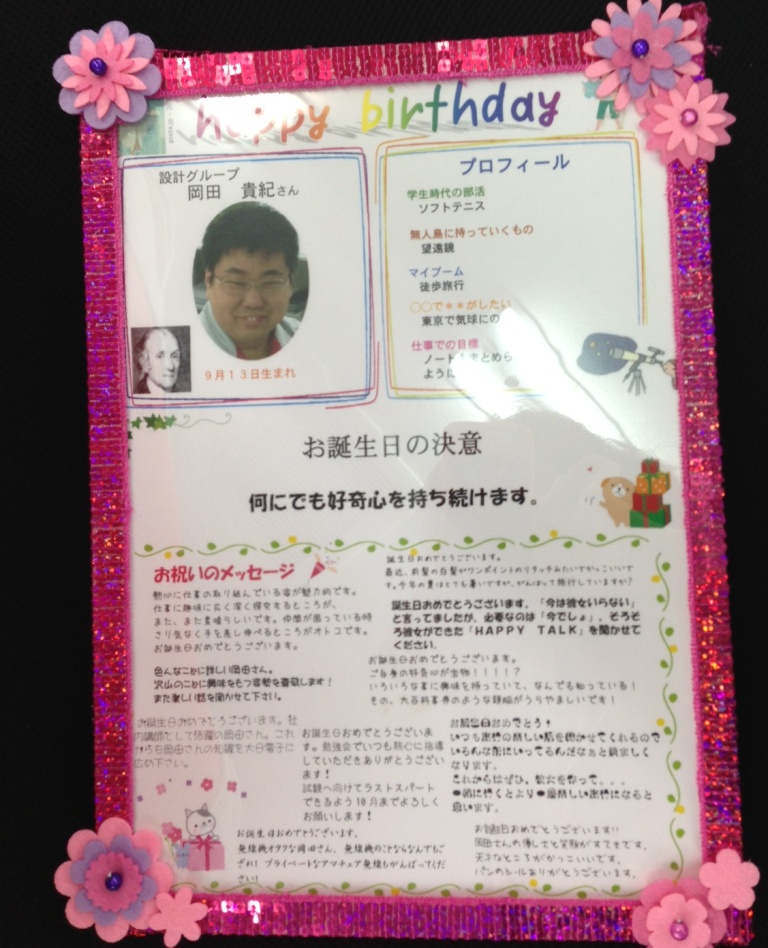 happy birthday
設計グループ
岡田　貴紀さん
9月13日生まれ
プロフィール
学生時代の部活
ソフトテニス
無人島に持っていくもの
望遠鏡
マイブーム
徒歩旅行
○○で**がしたい
東京で気球にの
仕事での目標
ノートをまとめら
ように
お誕生日の決意
何にでも好奇心を持ち続けます。
お祝いのメッセージ
熱心に仕事の取り組んでいる姿が魅力的です。
仕事に趣味に広く深く探究するところが、
また、また素晴らしいです。仲間が困っている時
さり気なく手を差し伸べるところがオトコです。
お誕生日おめでとうございます。
色んなことに詳しい岡田さん。
沢山のことに興味をもつ姿勢を尊敬します！
また楽しい話を聞かせて下さい。
お誕生日おめでとうございます。社
内講師として活躍の岡田さん。これ
からも岡田さんの知識を大日電子に
広め下さい。
お誕生日おめでとうございま
す。勉強会でいつも熱心に指導
していただきありがとうござい
ます！
試験へ向けてラストスパート
できるよう10月までよろしく
お願いします！
お誕生日おめでとうございます。
無線機オタクな岡田さん、無線機のことならなんでもご
ざれ！プライベートなアマチュア無線もがんばってくだ
さい！
誕生日おめでとうございます。
最近、前髪の白髪がワンポイントのリタッチみたいでかっこいいで
す。今年の夏はとても暑いですが、がんばって旅行していますか？
誕生日おめでとうございます。「今は彼女いらない」
と言ってましたが、必要なのは「今でしょ」。そろそ
ろ彼女ができた「HAPPY　TALK」を聞かせて
ください。
お誕生日おめでとうございます。
ご自身の好奇心が宝物！！！！？
いろいろな事に興味を持っていて、なんでも知っている！
その、大百科事典のような頭脳がうらやましいです！
お誕生日おめでとう！
いつも旅行の楽しい話を聞かせてくれるので
いろんな所にいってるんだなぁと羨ましく
なります。
これからはぜひ、彼女を作って。。。
一緒に行くとより一層楽しい旅行になると
思います。
お誕生日おめでとうございます!!
岡田さんの優しさと笑顔がすてきです。
天才なところがかっこいいです。
パンのシールありがとうございます。